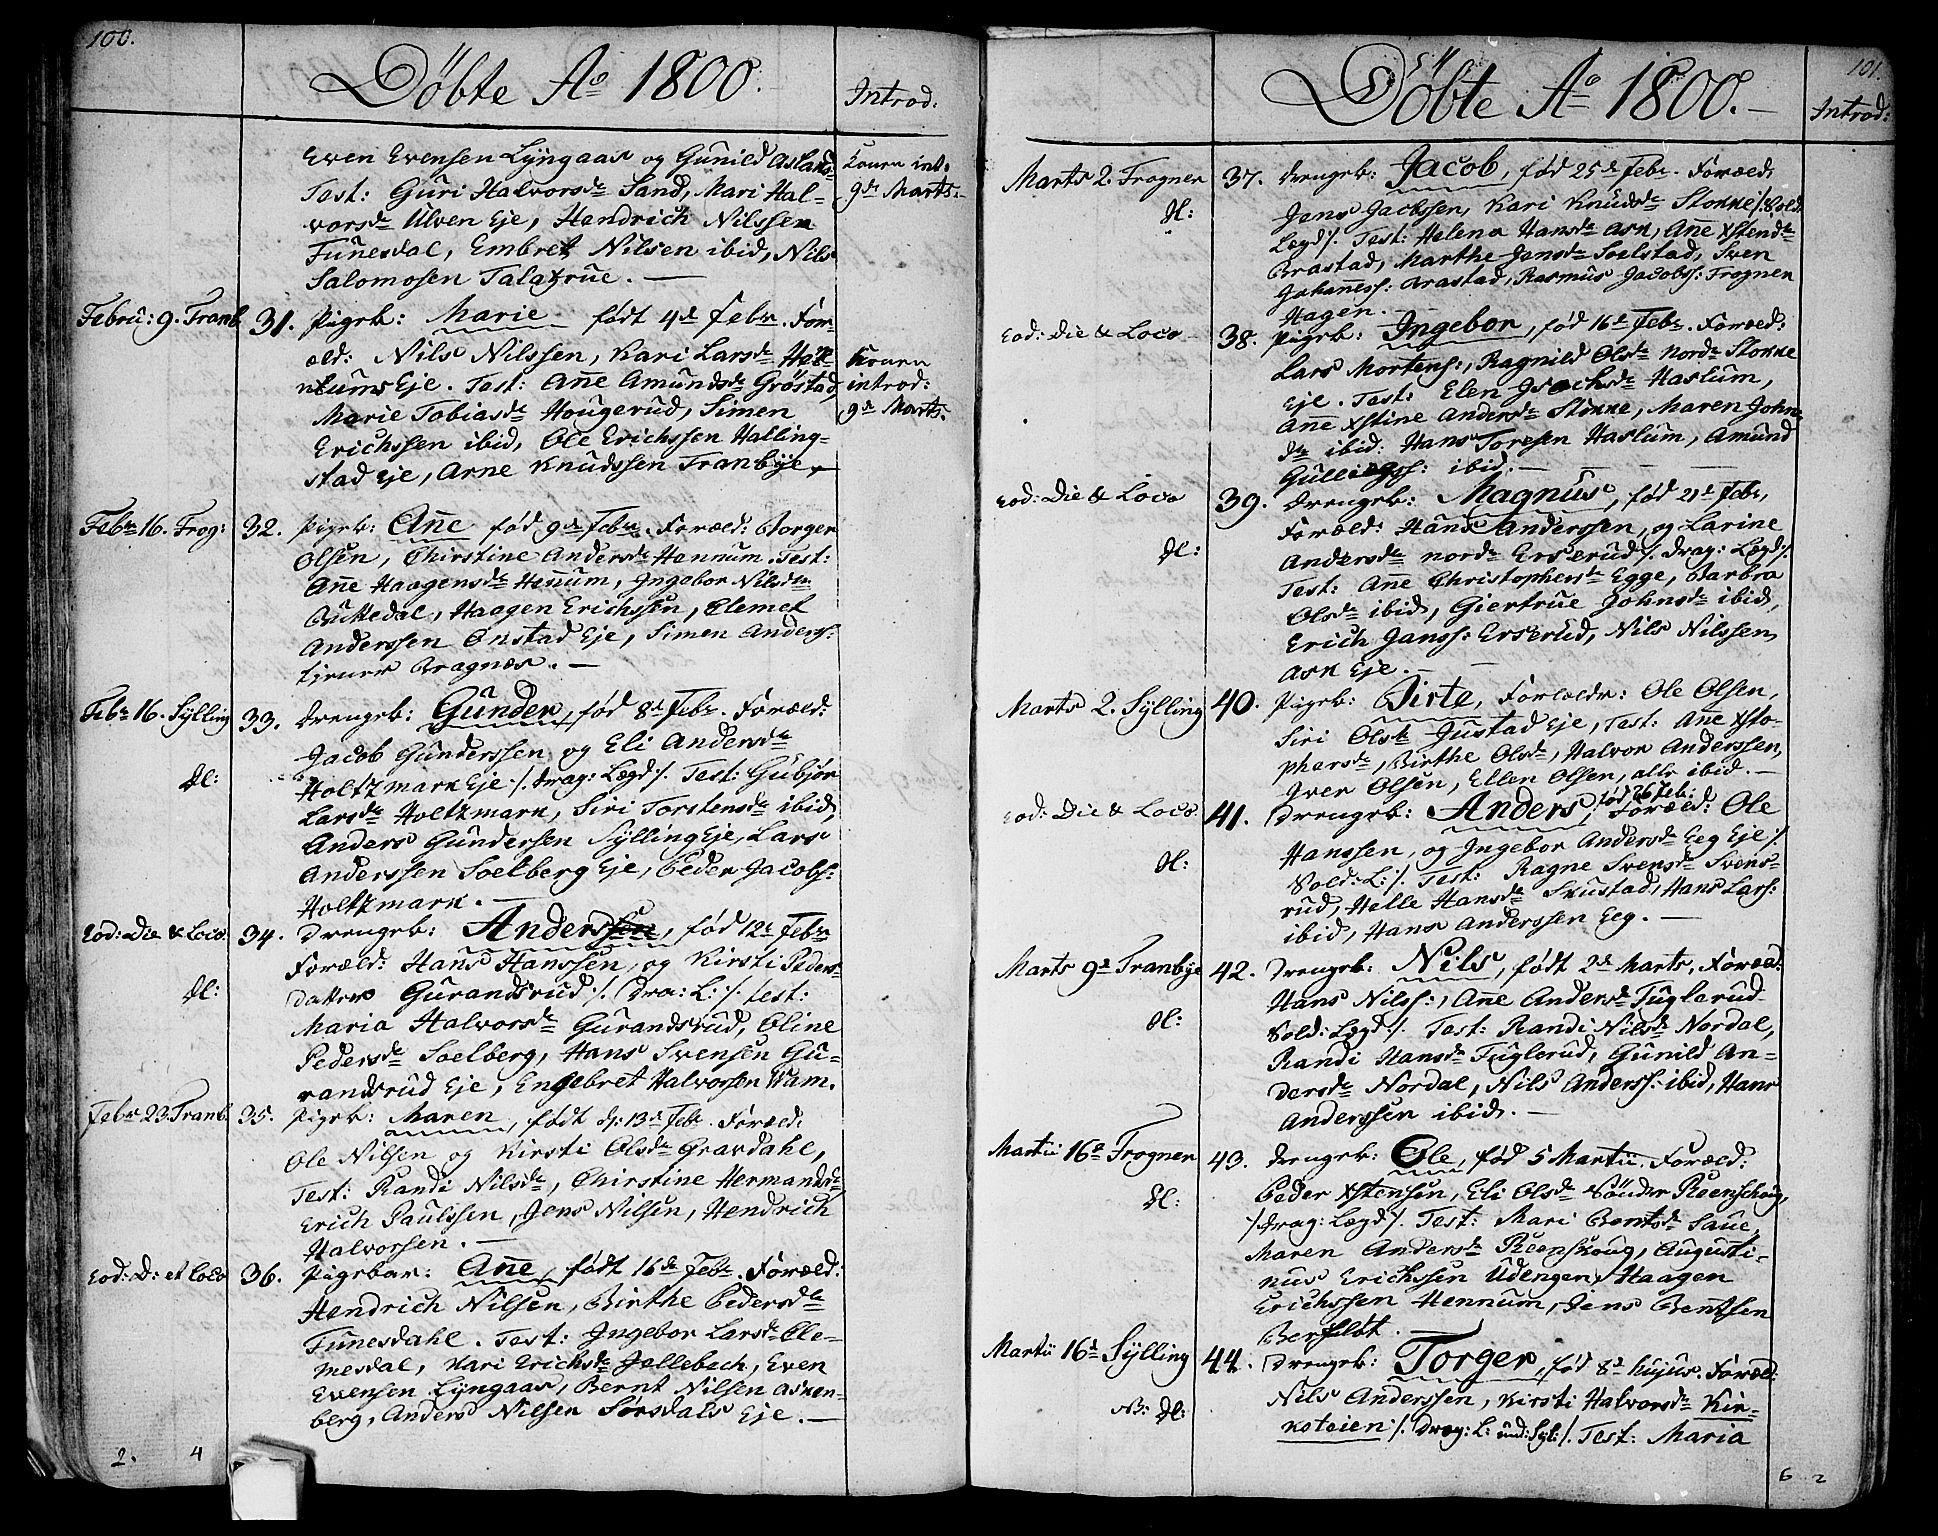 100.
Döbte Aº 1800.
Introd:
Even Evensen Lyngaas og Gunild Aslaks-
Test: Guri Halvorsdr Sand, Mari Hal-
vorsdr Ulven Eje, Hendrich Nilssen
Funesdal, Embret Nilsen ibid, Nils
Salomosen Talatrue. —
Konen int:
9de Marts.
Febru: 9. Tranb. 31. Pigeb: Marie født 4de Febr. For-
æld: Nils Nilssen, Kari Larsdr
Eje. Test: Añe Amundsdr Gröstad,
Marie Tobiasdr Hougerud, Simen
Erichssen ibid, Ole Erichssen Halling-
stad Eje, Arne Knudssen Tranbye
Konen
introd:
9de Marts:
Febr 16. Frog: 32. Pigeb: Añe fød 9de Febr. Foræld: Borger
Olsen, Chirstine Andersdr Hennum. Test:
Añe Haagensdr Heñum, Ingebor Nilsdr
Bukkedal, Haagen Erichssen, Clemet
Anderssen Onstad Eje, Simen Anderss:
tjener Bragnæs. —
Febr 16. Sylling 33. Drengeb: Gunder, fød 8de Febr. Foræld:
Jacob Gunderssen og Eli Andersdr
Holtzmark Eje /: Drag: Lægd :/. Test: Gubjør
dl:
Larsdr Holtzmark, Siri Torstensdr ibid,
Anders Gundersen Sylling Eje, Lars
Anderssen Soelberg Eje, Peder Jacobs:
Holtzmark. —
Eod: Die & Loco. 34. Drengeb: Anderssen, fød 12te Febr
Foræld: Hans Hanssen, og Kirsti Peders-
datter Gurandsrud /: Dra: L: /. Test:
dl:
Maria Halvorsdr Gurandsrud, Oline
Pedersdr Soelberg, Hans Svensen Gu-
randsrud Eje, Engebret Halvorssen Wam.
Febr 23. Tranb. 35. Pigeb: Maren, født d: 13de Febr. Foræld:
Ole Nilsen og Kirsti Olsdr Gravdahl,
Test: Randi Nilsdr, Chirstine Hermandsdr
Erich Paulssen, Jens Nilsen, Hendrich
Halvorsen. —
Eod: D: et Loco 36. Pigebar: Añe, født 16de Febr. Foræld:
Hendrich Nilsen, Birthe Pedersdr
Funesdahl. Test: Ingebor Larsdr Cle-
mesdal, Kari Erichsdr Jellebech, Even
Evensen Lyngaas, Bernt Nilsen Asken-
berg, Anders Nilsen Sørsdals Eje. —
2. 4
101.
Döbte Aº 1800. —
Introd:
Marts 2. Frogner 37. Drengeb: Jacob, fød 25de Febr. Foræld:
Jens Jacobssen, Kari Knudsdr Stokke /: Sold:
dl:
Lægd /. Test: Helena Hansdr Ask, Añe Xstendr
Brastad, Marthe Jensdr Soelstad, Sven
Johañess: Brastad, Rasmus Jacobss: Frogner
Hagen. —
Eod: Die & Loco 38. Pigeb: Ingebor, fød 16de Febr. Foræld:
Lars Mortens:, Ragnild Olsdr nordr Stokke
Eje. Test: Elen Isachsdr Haslum,
Añe Xstine Andersdr Stokke, Maren Johns
dr ibid: Hans Toresen Haslum, Amund
Gulliчss: ibid. —
Eod: Die & Loco 39. Drengeb: Magnus, fød 21de Febr,
Foræld: Hans Anderssen, og Larine
dl:
Andersdr nordr Erserud /: Drag: Lægd /.
Test: Añe Christophersdr Egge, Barbra
Olsdr ibid, Giertrue Johnsdr ibid,
Erich Janss: Erserud, Nils Nilssen
Ask Eje. —
Marts 2. Sylling 40. Pigeb: Birte, Forældr: Ole Olsen,
Siri Olsdr Justad Eje, Test: Añe Xsto-
phersdr, Birthe Olsdr, Halvor Anderssen,
Iver Olsen, Ellen Olsen, alle ibid. —
Eod: Die & Loco. 41. Drengeb: Anders, fød 26 Feb: Foræld: Ole
Hanssen, og Ingebor Andersdr Eeg Eje /:
dl:
Sold: L: /. Test: Ragne Svensdr Svens-
rud, Helle Hansdr Skustad, Hans Lars:
ibid, Hans Anderssen Eeg. —
Marts 9de Tranbye 42. Drengeb: Nils, født 2de Marts, Foræld:
Hans Nilss:, Añe Andersdr Fuglerud
dl:
Sold: Lægd /. Test: Randi Nilsdr Nordal,
Randi Hansdr Fuglerud, Gunild An-
dersdr Nordal, Nils Anderss: ibid, Hans
Anderssen ibid. —
Martii 16de Frogner 43. Drengeb: Ole, fød 5 Martii. Foræld:
Peder Xstensen, Eli Olsdr Sönder Reenschoug,
dl:
/: Drag: Lægd /. Test: Mari Bentsdr Saue,
Maren Andersdr Reenskoug, Augusti-
nus Erichssen Udengen, Haagen
Erichssen Hennum, Jens Bentsen
Berfløt. —
Martii 16de Sylling 44. Drengeb: Torger, fød 8de hujus. Foræld:
Nils Anderssen, Kirsti Halvorsdr Kir-
NB: dl:
koteien /: Drag: L: und: Syl: /. Test: Maria
6 2